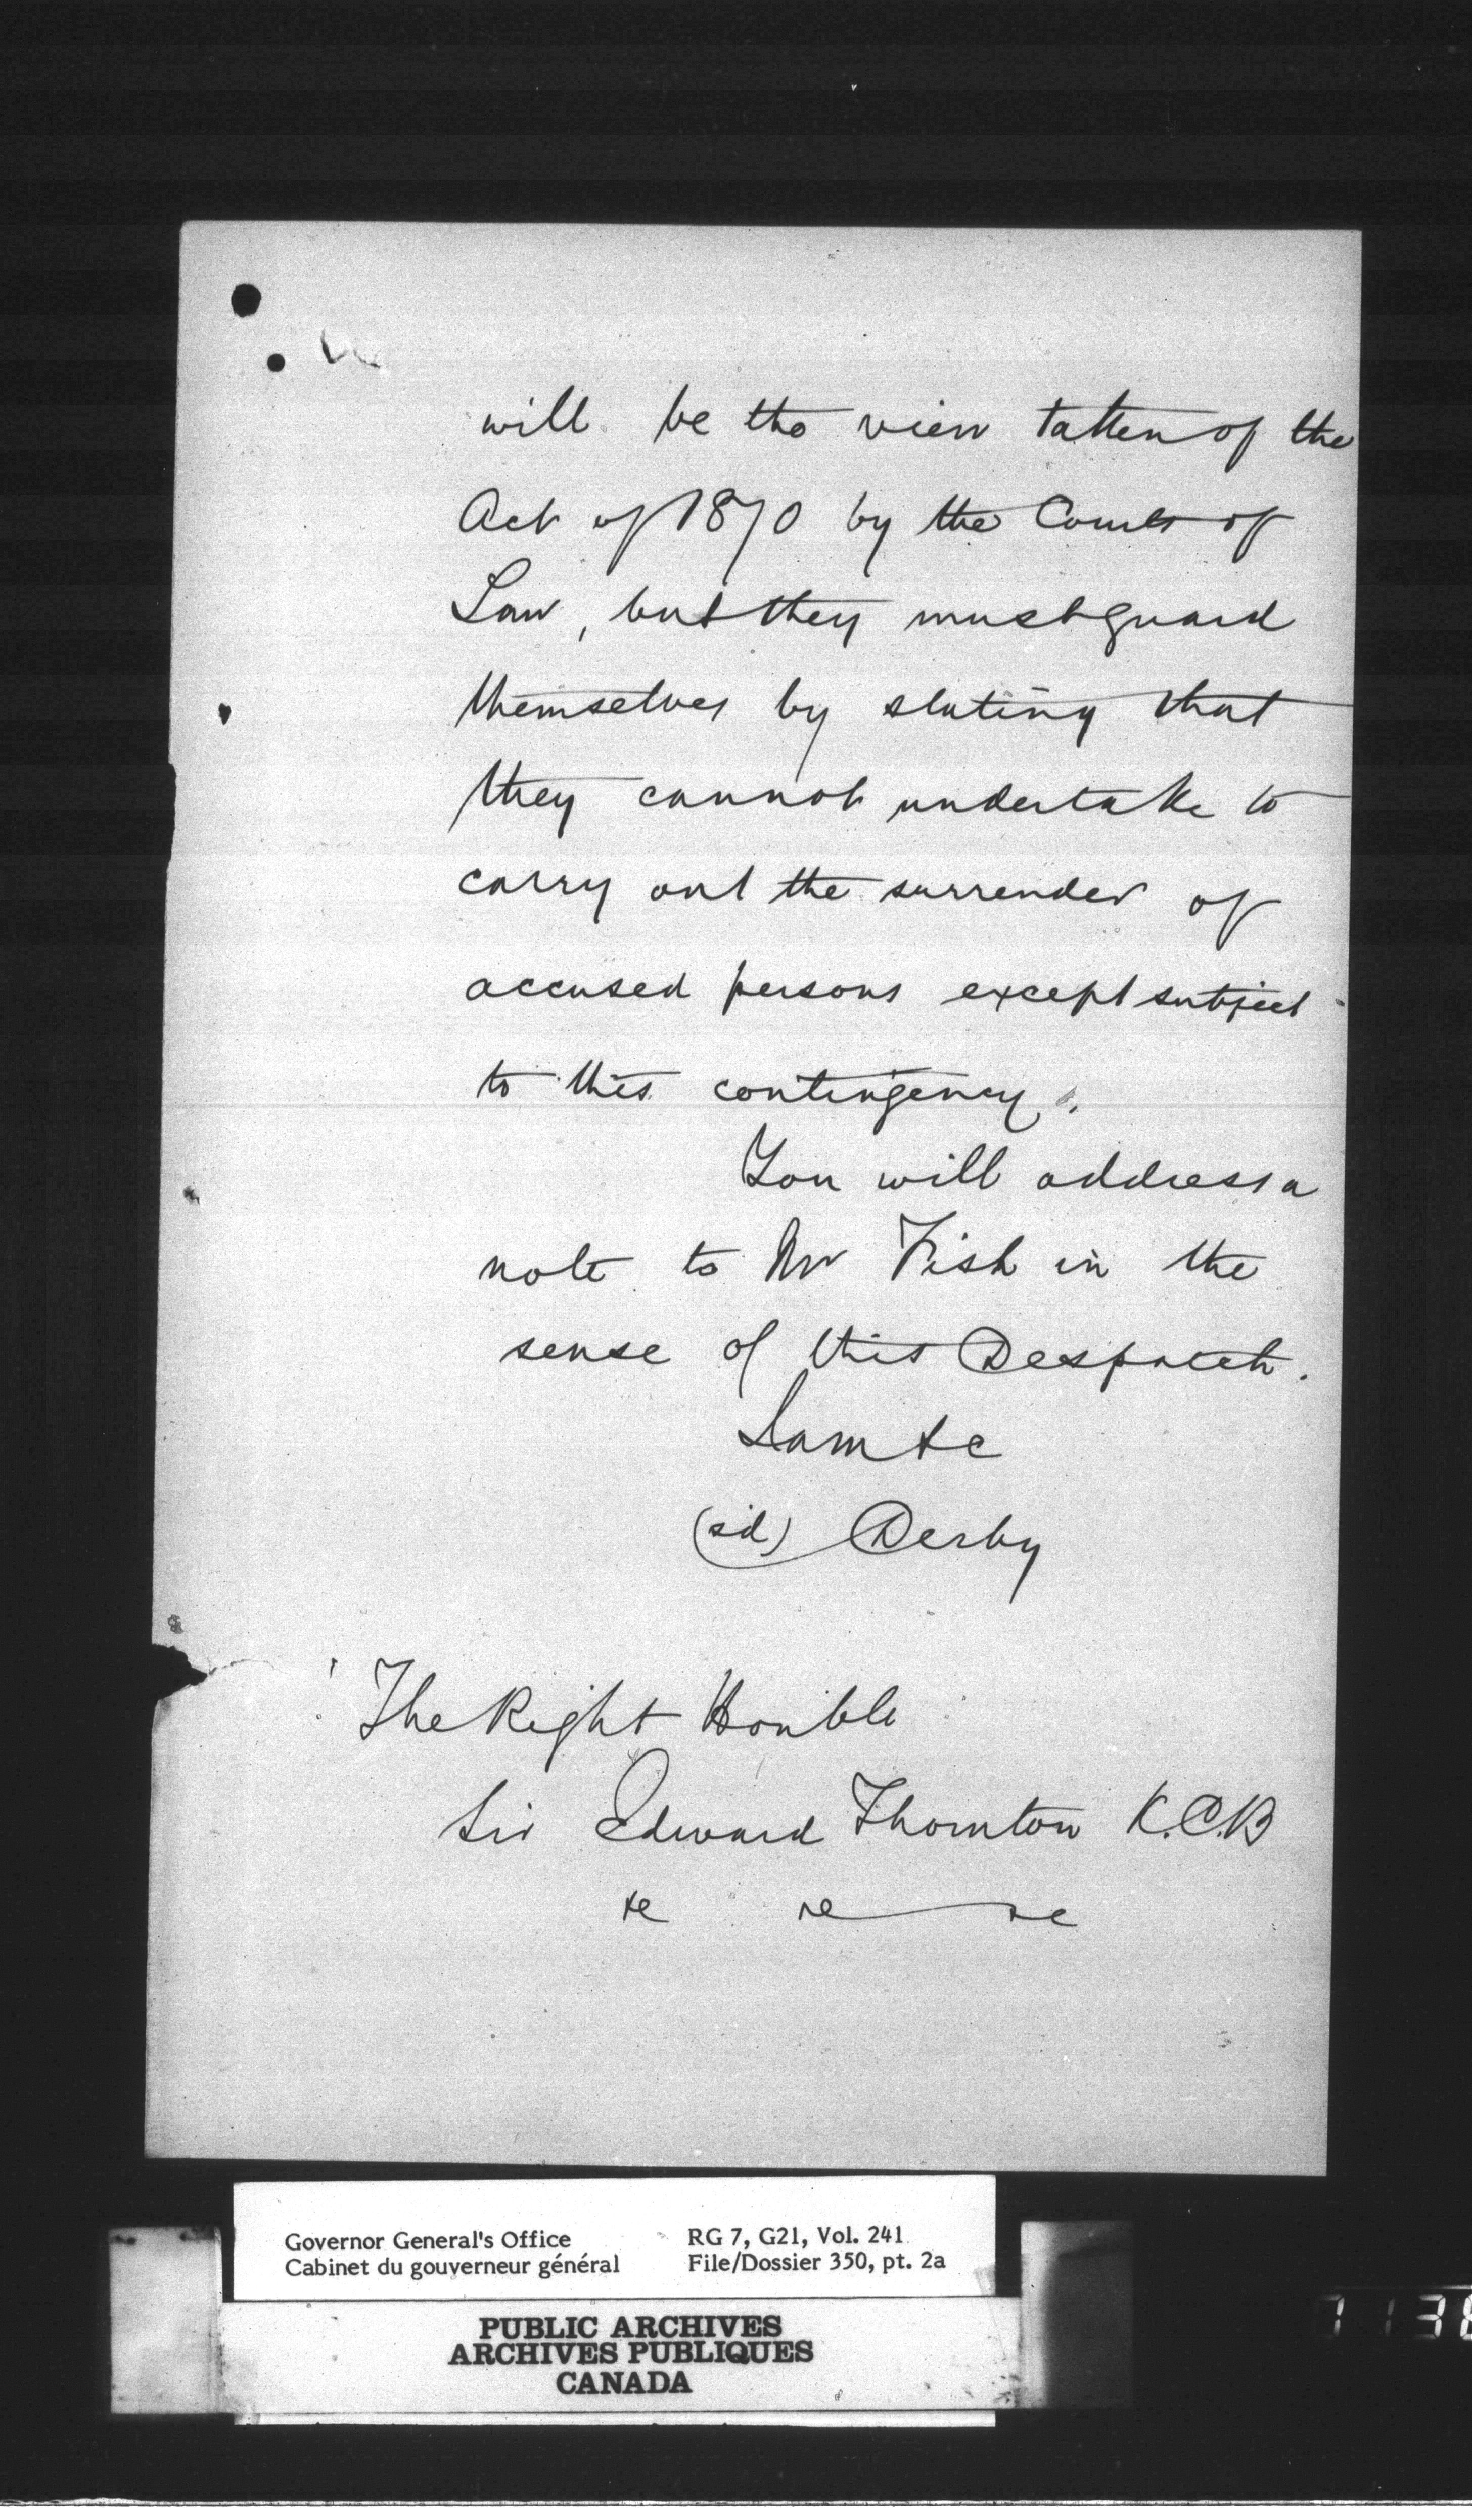 will be the view taken of the
Act of 1870 by the Courts of
Law, but they must guard
themselves by stating that
they cannot undertake to
carry out the surrender of
accused persons except subject
to this contingency.
You will address a
note to Mr Fish in the
sense of this Despatch.
I am &c
(sd) Derby
The Right Honble
Sir Edward Thornton K.C.B
&c &c &c
Governor General's Office
Cabinet du gouverneur général
RG 7, G21, Vol. 241
File/Dossier 350, pt. 2a
PUBLIC ARCHIVES
ARCHIVES PUBLIQUES
CANADA